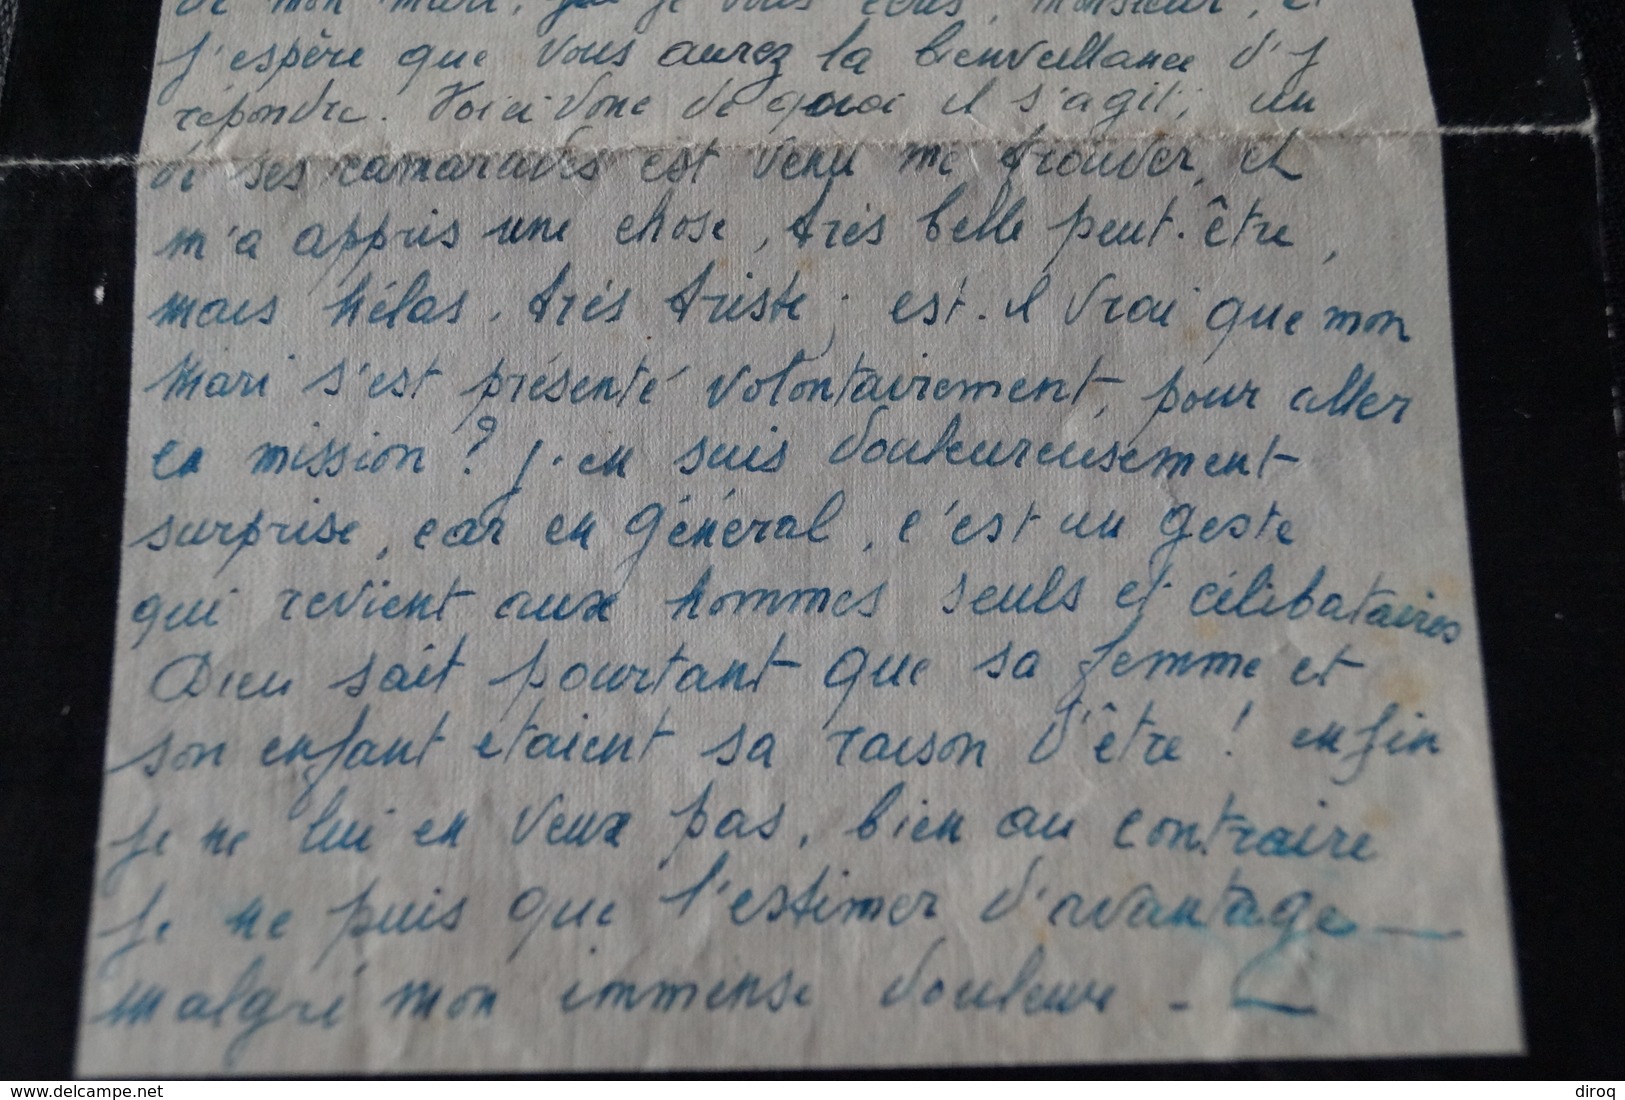 de mon mari, que je vous écris, monsieur, et
j'espère que vous aurez la bienveillance d'y
répondre. Voici donc de quoi il s'agit; un
de ses camarades est venu me trouver, et
m'a appris une chose, très belle peut-être,
mais hélas, très triste; est-il vrai que mon
mari s'est présenté volontairement, pour aller
en mission? j'en suis douleureusement
surprise, car en général, c'est un geste
qui revient aux hommes seuls et célibataires
Dieu sait pourtant que sa femme et
son enfant étaient sa raison d'être! enfin
je ne lui en veux pas, bien au contraire
je ne puis que l'estimer d'avantage —
malgré mon immense douleur -
diroq